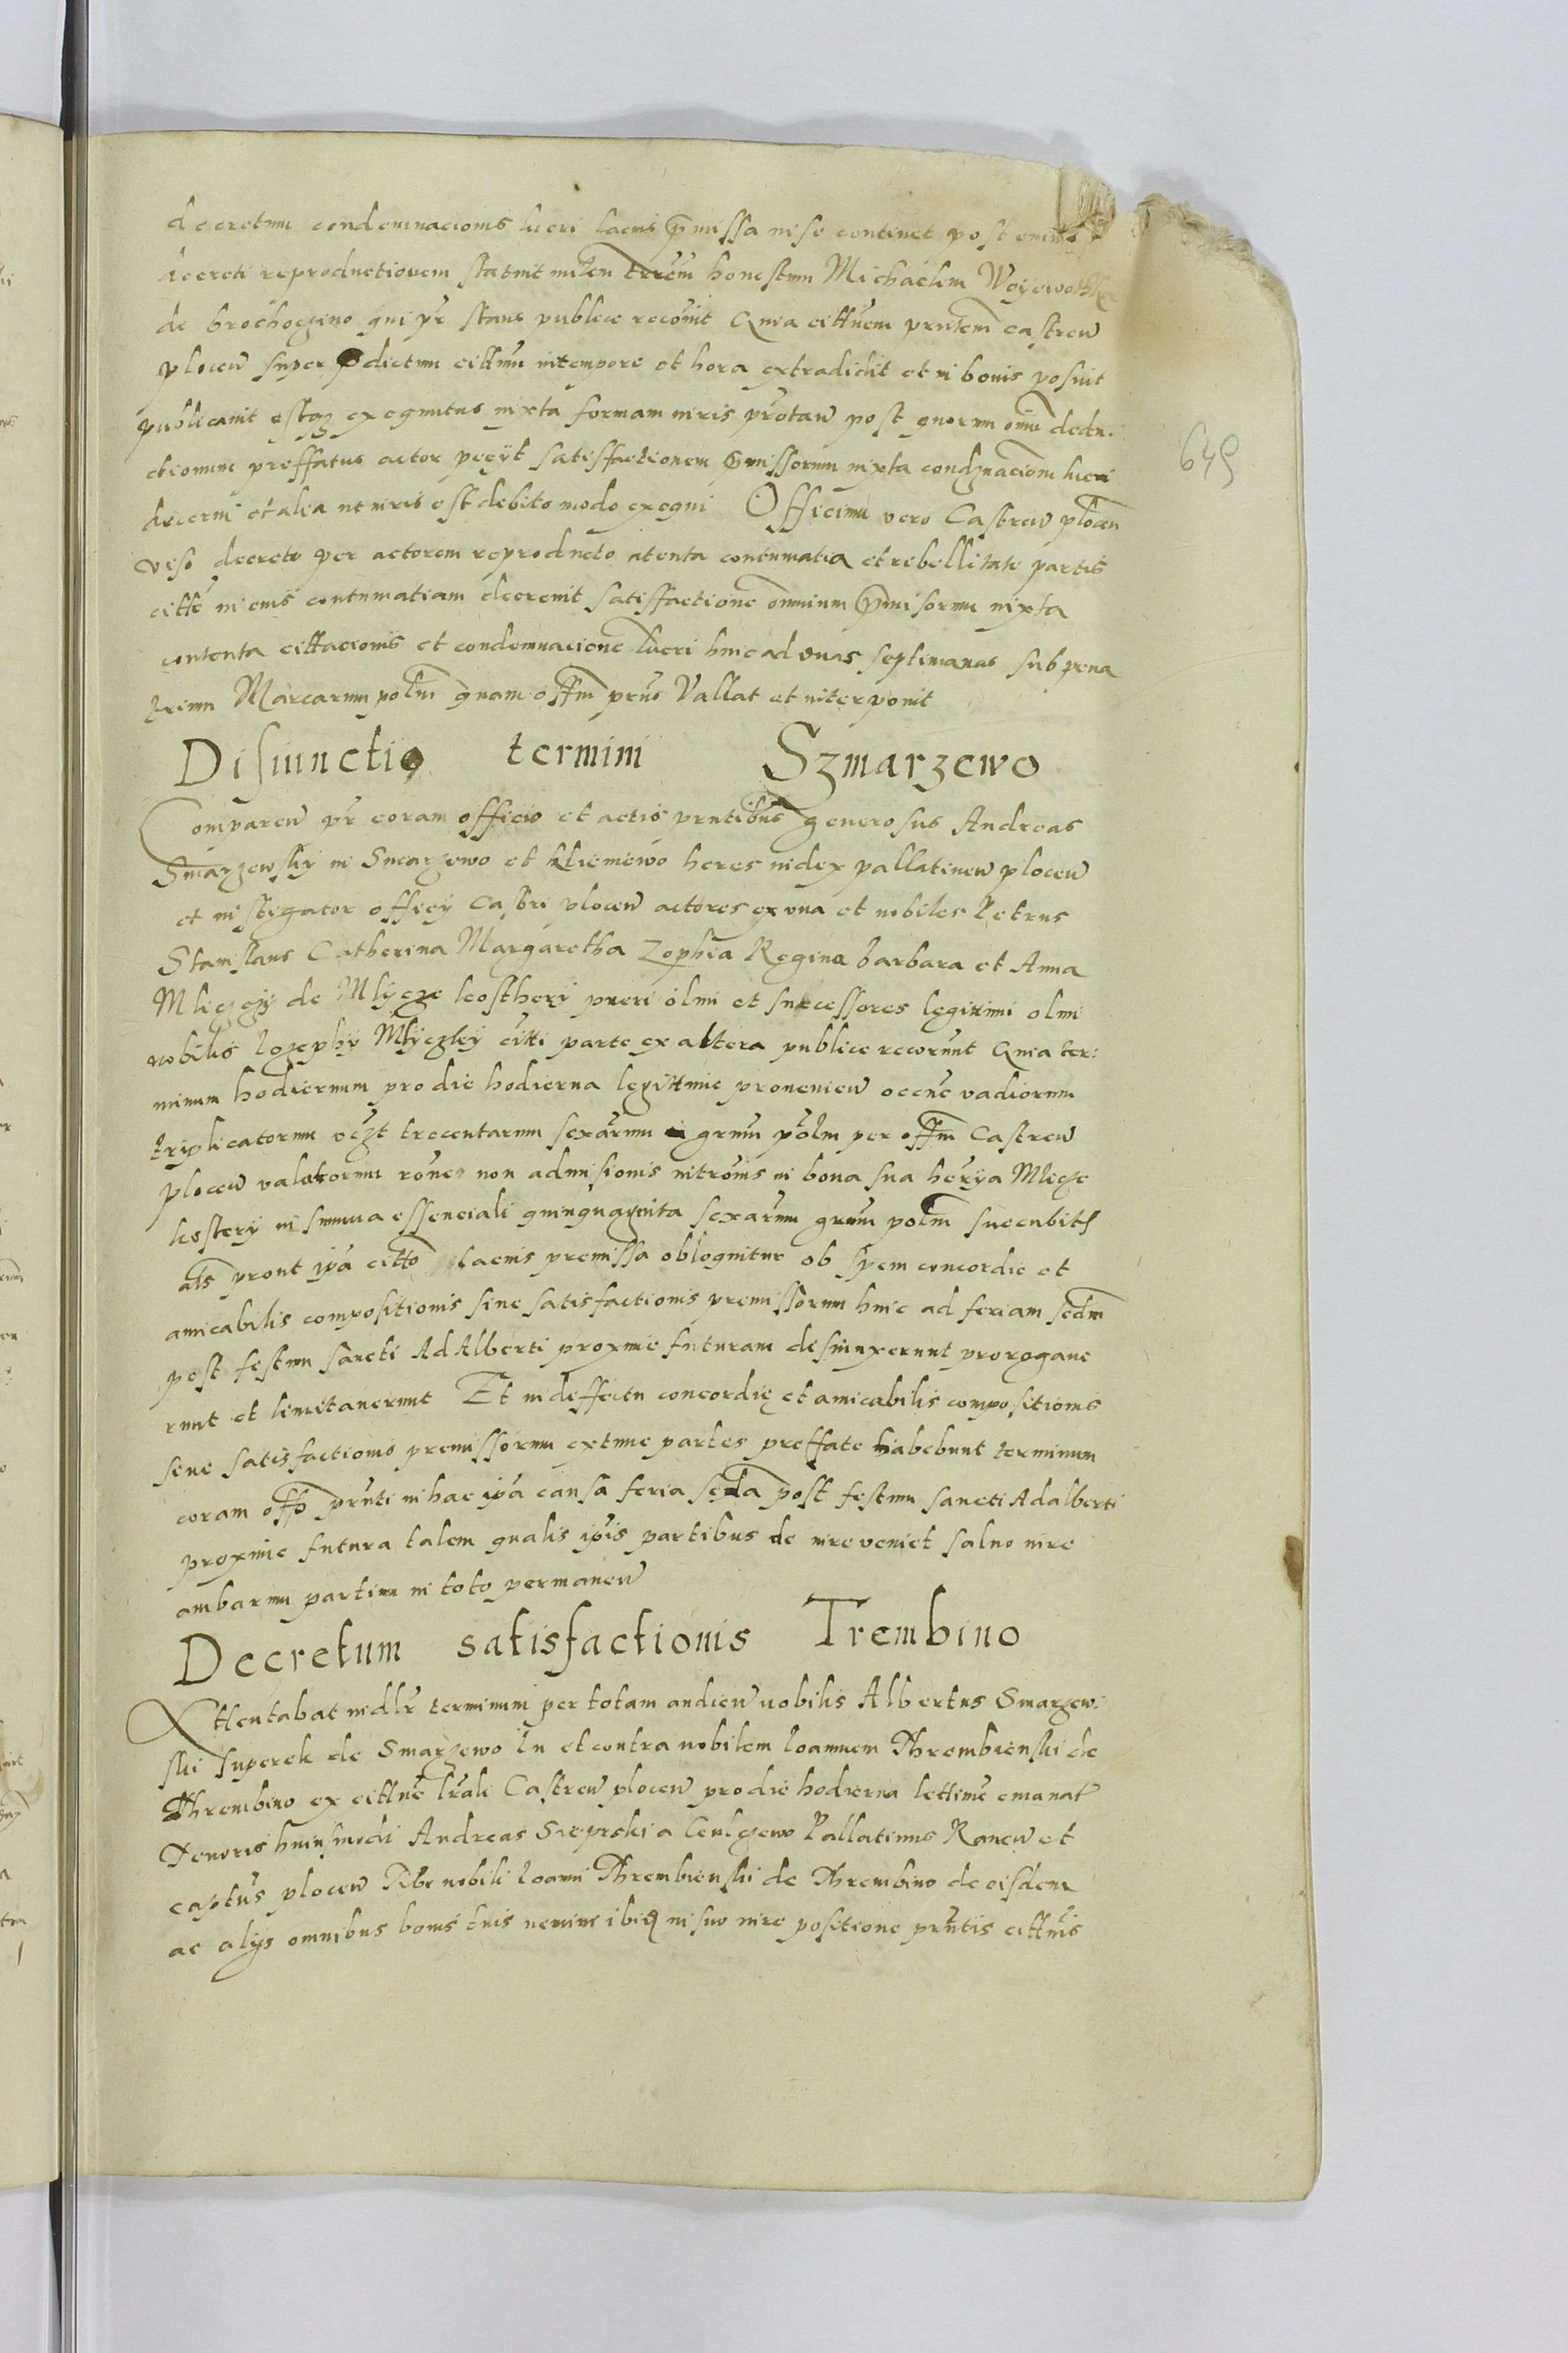 decretum condemnacionis lucri lacius p̄missa in se continet post cuius
decreti reproductionem statuit mīlem terrēm honestum Michaelem Woyewothka
de brochoczino qui pr̄ stans publice recōuit Quia cittūem prntem castren̄
plocen̄ super p̄dictum cittum in tempore et hora extradidit et in bonis posuit
publicauit estq exequutus iuxta formam iuris protan̄ post quorum oīu dedu-
ctionum preffatus actor pecyt satisfactionem p̄missorum iuxta condnacionem lucri
decerni et alia ut iuris est debito modo exequi Officium vero Castren̄ plocen̄
viso decreto per actorem reproducto atenta contumatia et rebellitate partis
citte in eius contumatiam decreuit satisfactione omnium p̄misorum iuxta
contenta cittacionis et condemnacione lucri hinc ad duas septimanas sub pena
trium Marcarum polm quam offm prns Vallat et interponit
Disiunctio termini Szmarzewo
Comparen̄ pr̄ coram officio et actis prntibus generosus Andreas
Smarzewsky in Smarzewo et Kliemiewo heres iudex pallatinen̄ plocen̄
et instigator officy Castri plocen̄ actores ex una et nobiles Petrus
Stanislaus Catherina Margaretha Zophia Regina barbara et Anna
Mliczczy de Mlycze kosthery pueri olim et successores legittimi olim
nobilis Iozephy Mlyczky citti parte ex altera publice recorunt Quia ter-
minum hodiernum pro die hodierna legittime prouenien̄ occne vadiorum
triplicatorum vēzt trecentarum sexarum grum polm per offm Castren̄
plocen̄ valatorum rōne non admisionis intronis in bona sua herya Mlicze
kostery in summa essenciali quinquaginta sexarum grum polm succubit
als prout ipa citto lacius premissa obloquitur ob spem concordie et
amicabilis compositionis sine satisfactionis premissorum hinc ad feriam scdm
post festum sancti AdAlberti proxime futuram desiunxerunt prorogaue
runt et limitauerunt Et in deffectu concordię et amicabilis compositionis
seue satisfactionis premissorum extunc partes preffate habebunt terminum
coram offo prnti in hac ipa causa feria scda post festum sancti Adalberti
proxime futura talem qualis ipis partibus de iure veniet saluo iure
ambarum partium in toto permanen̄
Decretum satisfactionis Trembino
Attentabat iudlr terminum per totam audien̄ nobilis Albertus Smarzew-
ski Iuperek de Smarzewo In et contra nobilem Ioannem Thrembienski de
Thrembino ex cittne lrali Castren̄ plocen̄ pro die hodierna lettime emanat
Tenoris huiusmodi Andreas Sieprski a Gulczewo Pallatinus Rauen̄ et
captus plocen̄ Tibi nobili Ioanni Thrembienski de Thrembino de eisdem
ac alijs omnibus bonis tuis nemini ibiq in suo iure positione prntis cittnis
649